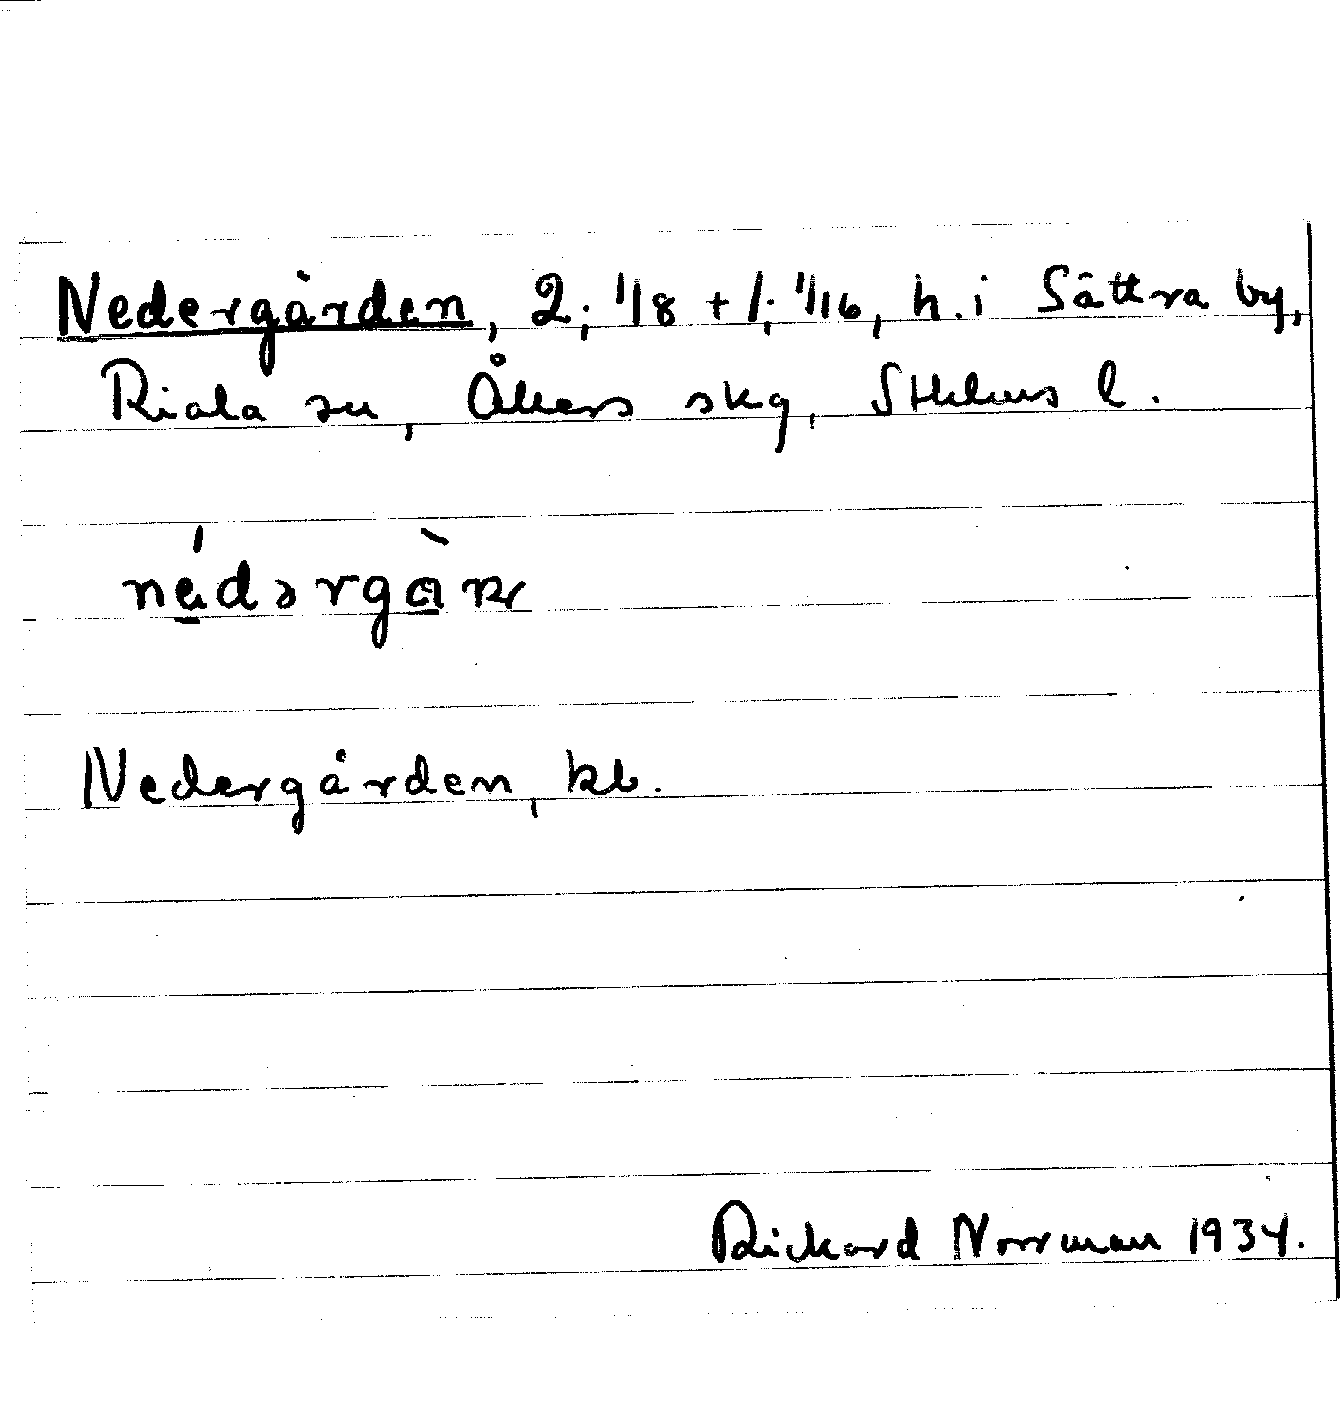 Nedergården, 2; 1/8 + 1; 1/16, h. i Sättra by,
Riala sn, Åkers skg, Sthlms l.
nédərgàṇ
Nedergården, kb.
Rickard Norrman 1934.